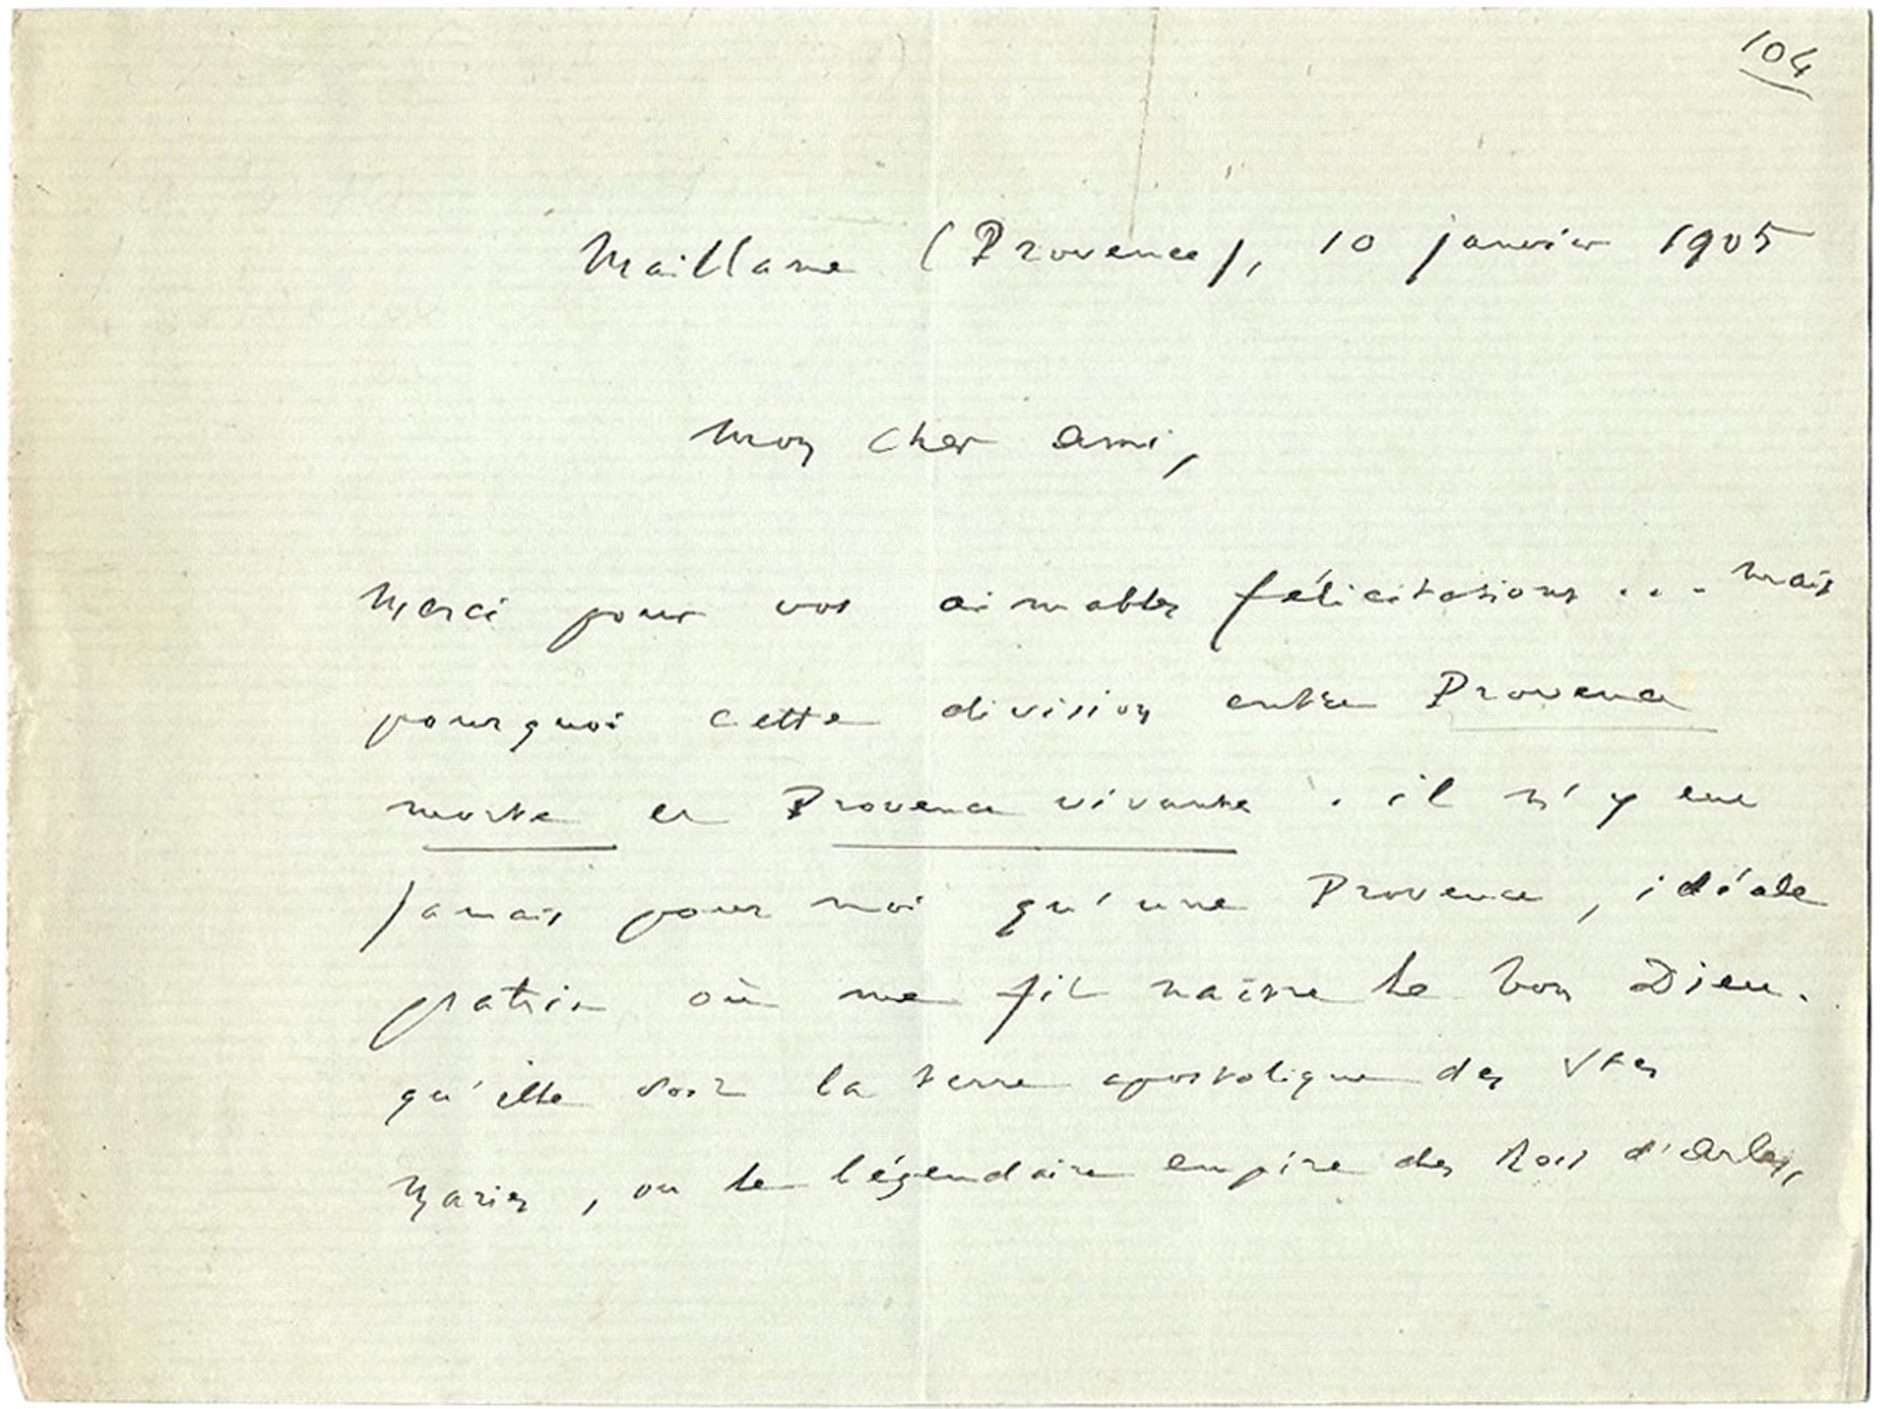 104
Maillane (Provence), 10 janvier 1905
Mon cher ami,
Merci pour vos aimables félicitations ... mais
pourquoi cette division entre Provence
morte et Provence vivante . il n'y eut
jamais pour moi qu'une Provence, idéale
patrie où me fit naître le bon Dieu.
qu'elle soit la terre apostolique des Stes
Maries, ou le légendaire empire des Rois d'Arles,